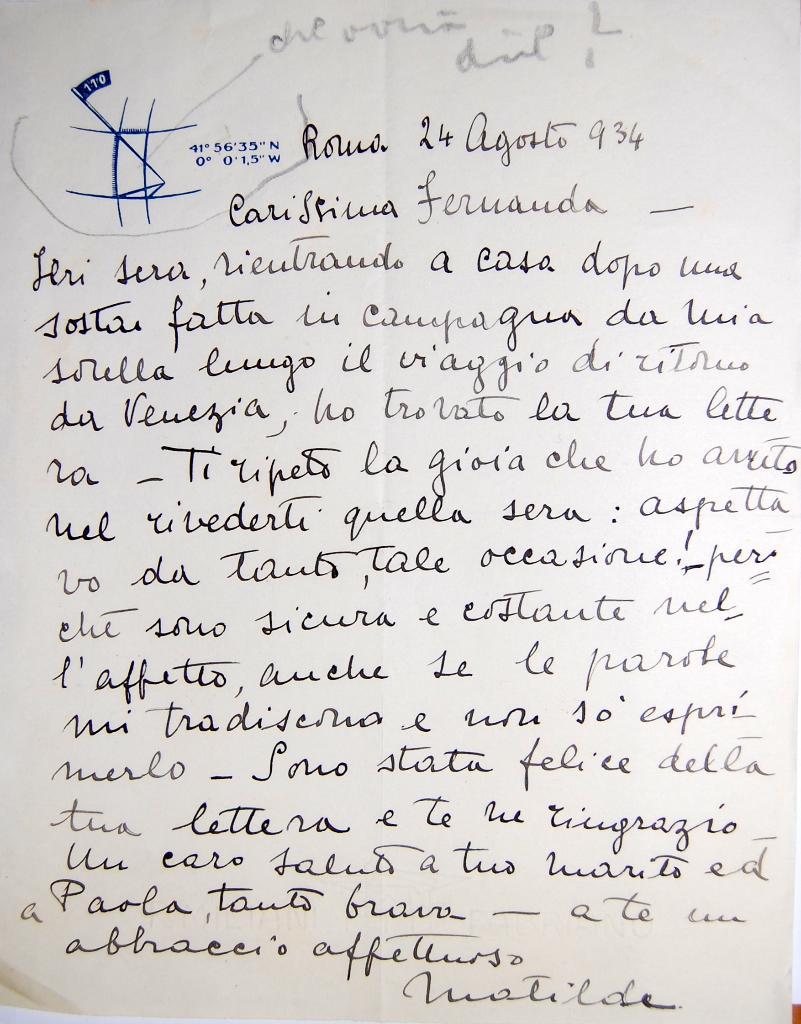 che vorrà
dire?
110
41° 56'35" N
0° 0'1,5" W
Roma 24 Agosto 934
Carissima Fernanda —
Ieri sera, rientrando a casa dopo una
sosta fatta in campagna da mia
sorella lungo il viaggio di ritorno
da Venezia, ho trovato la tua lette
ra — Ti ripeto la gioia che ho avuto
nel rivederti quella sera : aspetta
vo da tanto, tale occasione! per=
chè sono sicura e costante nel=
l'affetto, anche se le parole
mi tradiscono e non sò espri-
merlo — Sono stata felice della
tua lettera e te ne ringrazio —
Un caro saluto a tuo marito ed
a Paola, tanto brava — a te un
abbraccio affettuoso
Matilde